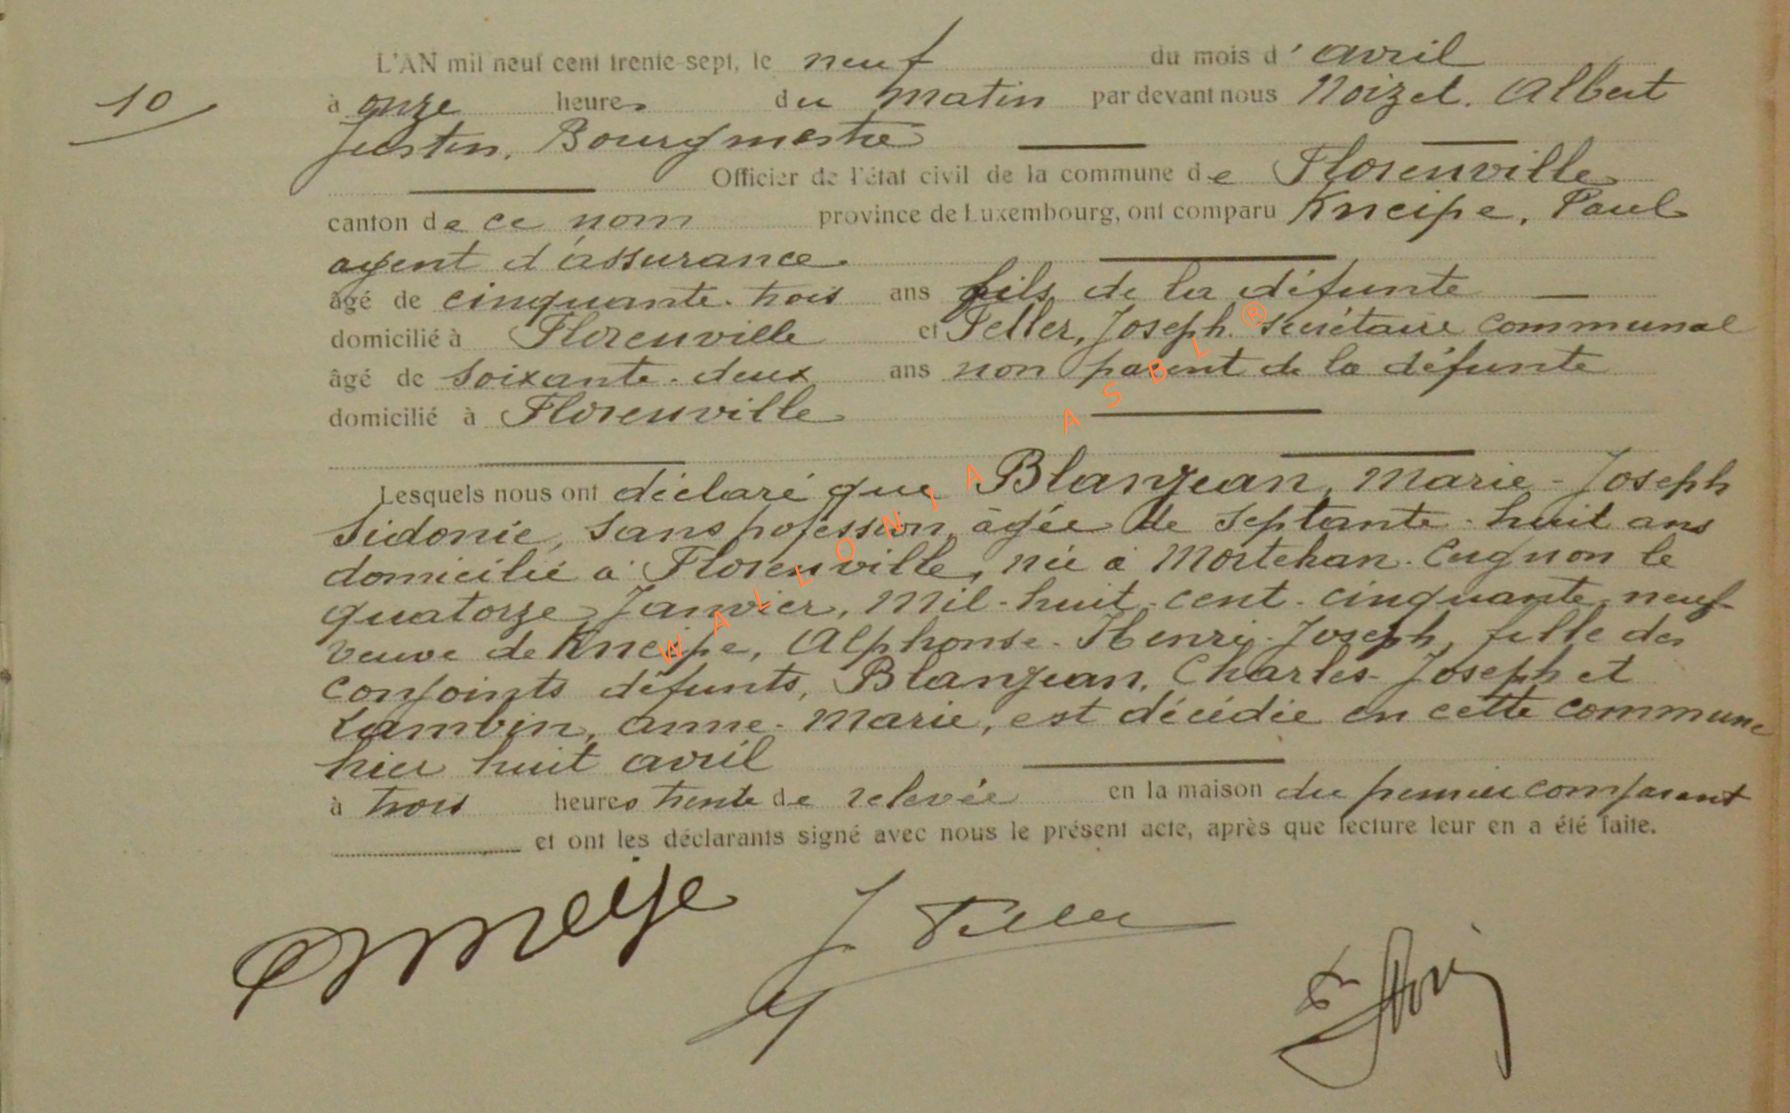 L'AN mil neuf cent trente-sept, le neuf du mois d' avril
10 à onze heures du matin par devant nous Noizet. Albert
Justin. Bourgmestre
Officier de l'état civil de la commune de Florenville
canton de ce nom province de Luxembourg, ont comparu Kneipe, Paul
agent d'assurance
âgé de cinquante-trois ans fils de la défunte
domicilié à Florenville et Feller, Joseph. secrétaire communal
âgé de soixante-deux ans non parent de la défunte
domicilié à Florenville
Lesquels nous ont déclaré que Blanjean, Marie-Joseph
Sidonie, sans profession, âgée de septante-huit ans
domicilié à Florenville, née à Mortehan-Cugnon le
quatorze Janvier, mil-huit-cent-cinquante-neuf
veuve de Kneipe, Alphonse-Henri-Joseph, fille des
conjoints défunts, Blanjean, Charles-Joseph et
Lambin, Anne-Marie, est décédée en cette commune
hier huit avril
à trois heures trente de relevée en la maison du premier comparant
et ont les déclarants signé avec nous le présent acte, après que lecture leur en a été faite.
Kneipe J Feller
WALLONIA ASBL ®